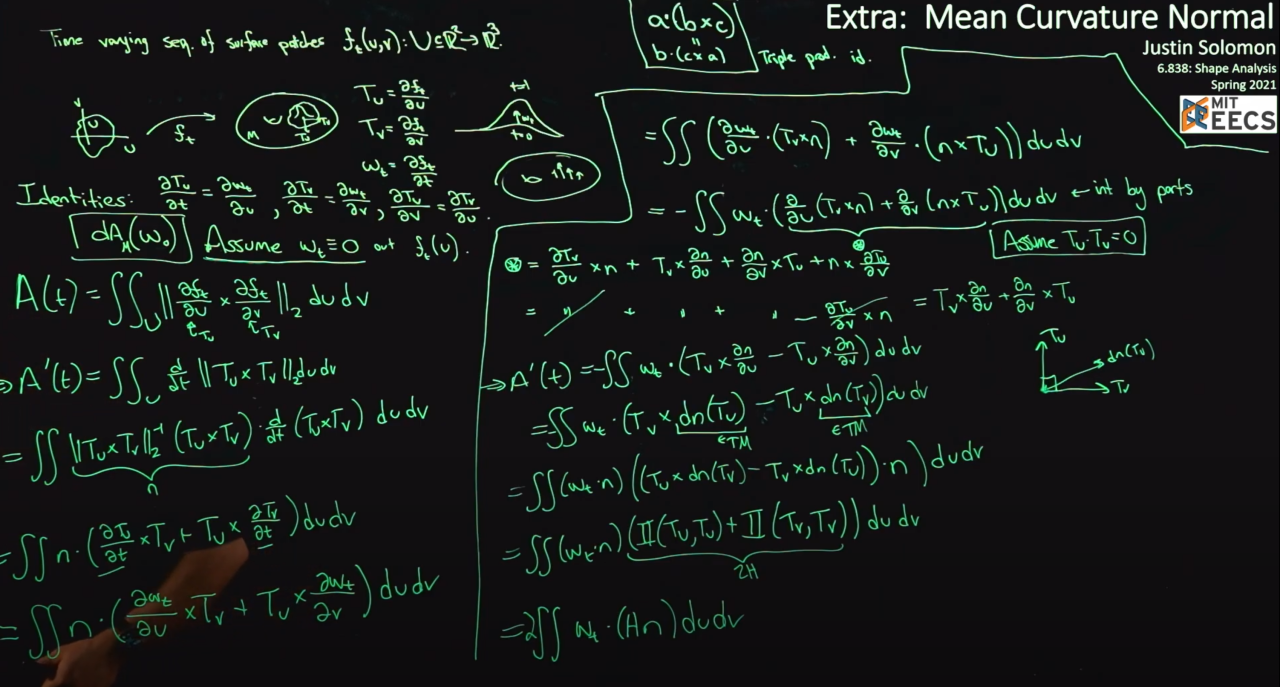 Extra: Mean Curvature Normal
Justin Solomon
6.838: Shape Analysis
Spring 2021
MIT
EECS
Time varying seq. of surface patches f_t(u,v): U⊆ℝ²→ℝ³.
a·(b×c)
"
b·(c×a)
Triple prod. id.
v
U
u
f_t
M
T_u = ∂f_t/∂u
T_v = ∂f_t/∂v
w_t = ∂f_t/∂t
t=1
w_t
t=0
Identities: ∂T_u/∂t = ∂w_t/∂u, ∂T_v/∂t = ∂w_t/∂v, ∂T_u/∂v = ∂T_v/∂u.
dA_M(w_0) Assume w_t ≡ 0 out f_t(U).
A(t) = ∬_U ||∂f_t/∂u × ∂f_t/∂v||_2 du dv
T_u T_v
⇒ A'(t) = ∬_U d/dt ||T_u × T_v||_2 du dv
= ∬ ||T_u×T_v||_2^{-1} (T_u×T_v) · d/dt (T_u×T_v) du dv
n
= ∬ n · (∂T_u/∂t × T_v + T_u × ∂T_v/∂t) du dv
= ∬ n · (∂w_t/∂u × T_v + T_u × ∂w_t/∂v) du dv
= ∬ (∂w_t/∂u · (T_v×n) + ∂w_t/∂v · (n×T_u)) du dv
= -∬ w_t · (∂/∂u (T_v×n) + ∂/∂v (n×T_u)) du dv ← int by parts
⊛
Assume T_u·T_v=0
⊛ = ∂T_v/∂u × n + T_v × ∂n/∂u + ∂n/∂v × T_u + n × ∂T_u/∂v
= " + " + " - ∂T_u/∂v × n = T_v × ∂n/∂u + ∂n/∂v × T_u
⇒ A'(t) = -∬ w_t · (T_v × ∂n/∂u - T_u × ∂n/∂v) du dv
T_u
dn(T_v)
T_v
= ∬ w_t · (T_v × dn(T_u) - T_u × dn(T_v)) du dv
∈TM ∈TM
= ∬ (w_t·n) ((T_u × dn(T_v) - T_v × dn(T_u)) · n) du dv
= ∬ (w_t·n) (II(T_u,T_u) + II(T_v,T_v)) du dv
2H
= 2∬ w_t · (Hn) du dv